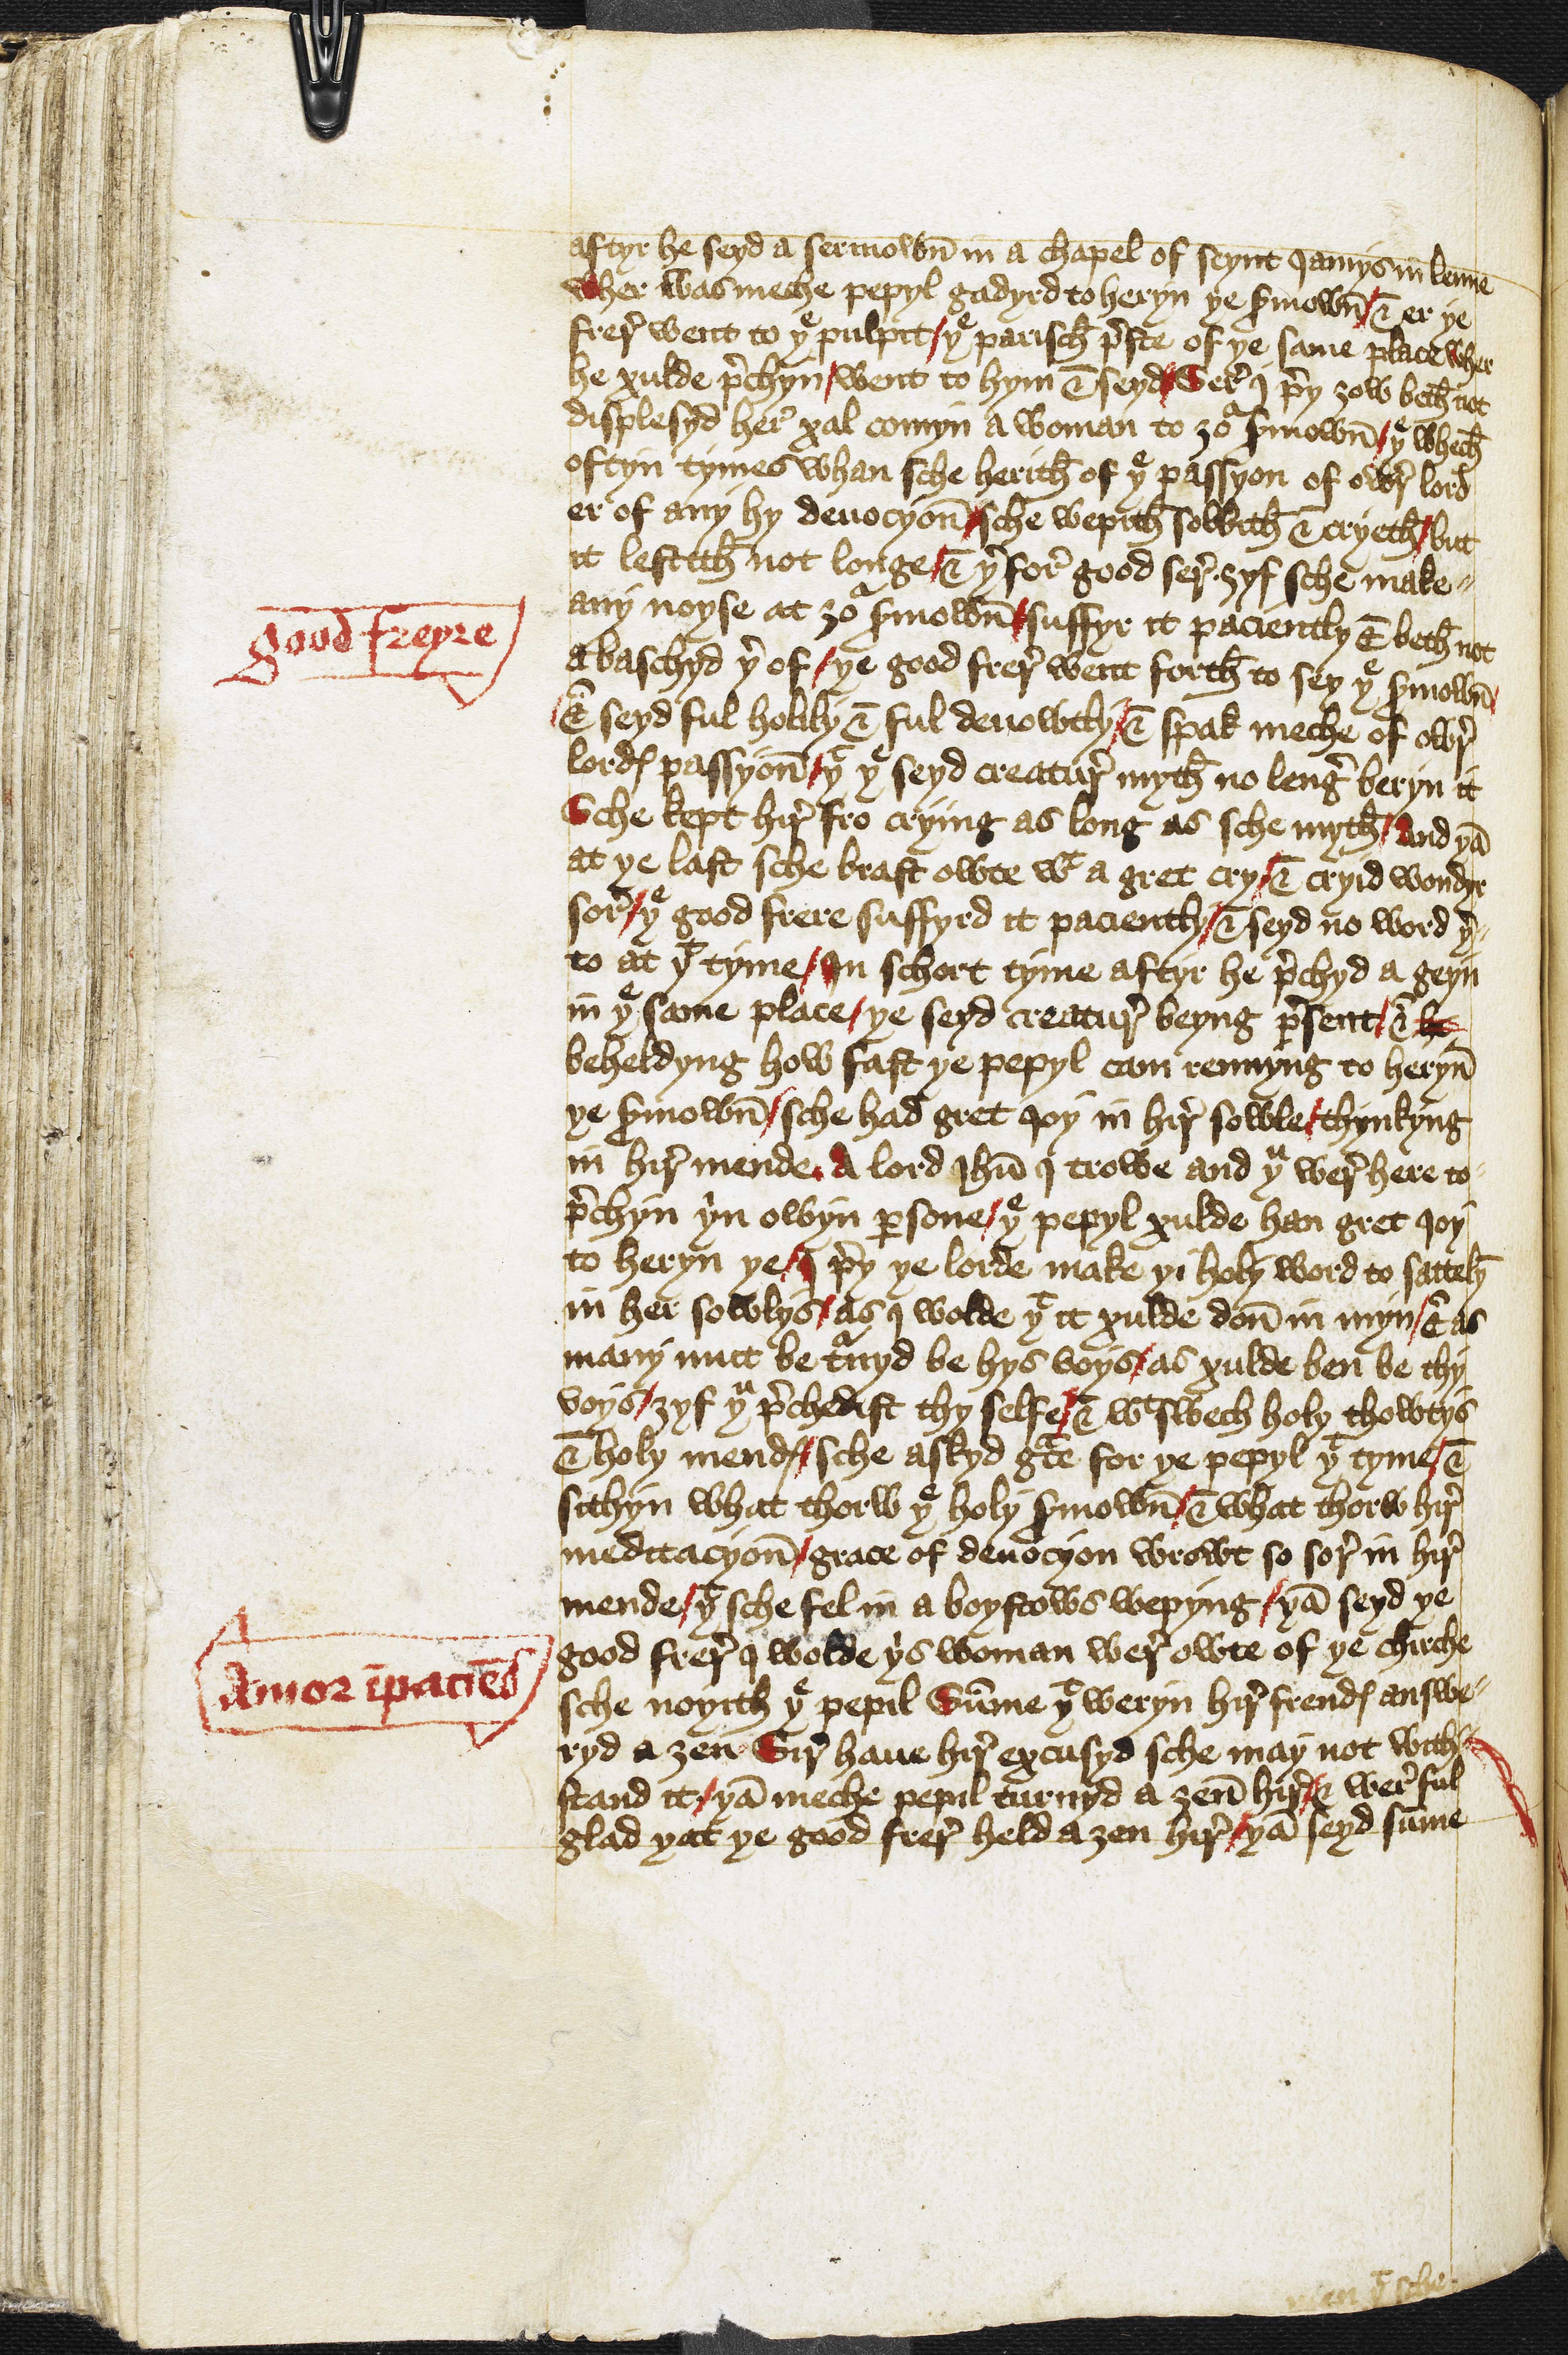 aftyr he seyd a sermown̄ in a chapel of seynt Jamys in lenne
wher was meche pepyl gadyrd to heryn ye s̕mown̄ / & er ye
frer̕ went to yᵉ pulpit / yᵉ parisch p̕ste of ye same place wher
he xulde p̕chyn / went to hym & seyd / Ser̕ I p̕y ȝow beth not
displesyd her̕ xal comyn a woman to ȝoᵃ s̕mown̄ / yᵉ whech
oftyn tymes whan sche herith of yᵉ passyon of owr̕ lord
er of any hy deuocyon̄ / sche wepith sobbith & cryeth / but
it lestith not longe / & y̕for̕ good ser̕ ȝyf sche make
any noyse at ȝoᵃ s̕mown̄ / suffyr it paciently & beth not
a baschyd y̕ of / ye good frer̕ went forth to sey yᵉ s̕mown̄ /
& seyd ful holily & ful deuowtly / & spak meche of owr̕
lordꝭ passyon̄ / yᵗ yᵉ seyd creatur̕ myth no leng̕ beryn it
Sche kept hir̕ fro crying as long as sche myth / And yā
at ye last sche brast owte wᵗ a gret cry / & cryid wondyr
sor̕ / yᵉ good frere suffyrd it paciently / & seyd no word y̕=
to at yᵗ tyme / In schort tyme aftyr he p̕chyd a geyn
in yᵉ same place / ye seyd creatur̕ beyng p̕sent / &
beheldyng how fast ye pepyl cam rennyng to heryn̄
ye s̕mown̄ / sche had gret joy in hir̕ sowle / thynkyng
in hir̕ mende. A lord Jhū I trowe and yᵘ wer̕ here to
p̕chyn yin owyn ꝑsone / yᵉ pepyl xulde han gret joy
to heryn ye / I p̕y ye lorde make yi holy word to sattelyn̄
in her sowlys / as I wolde yᵗ it xulde don̄ in myn / & as
many mict be tᵃnyd be hys voys / as xulde ben be thy
voys / ȝyf yᵘ p̕chedist thy selfe / & wᵗ swech holy thowtys
& holy mendꝭ / sche askyd gᵃce for ye pepyl yᵗ tyme / &
sithyn what thorw yᵉ holy s̕mown̄ / & what thorw hir̕
meditacyon̄ / grace of deuocyon wrowt so sor̕ in hir̕
mende / yᵗ sche fel in a boystows wepyng / yā seyd ye
good frer̕ I wolde yis woman wer̕ owte of ye chirche
sche noyith yᵉ pepil Sūme yᵗ weryn hir̕ frendꝭ answe=
ryd a ȝen Sir̕ haue hir̕ excusyd sche may not with=
stand it / yā meche pepil turnyd a ȝen̄ hir̕ / & wer̕ ful
glad yat ye good frer̕ held a ȝen hir̕ / yā seyd sūme
good freyre
Amor īpaciēs
men yᵗ sche